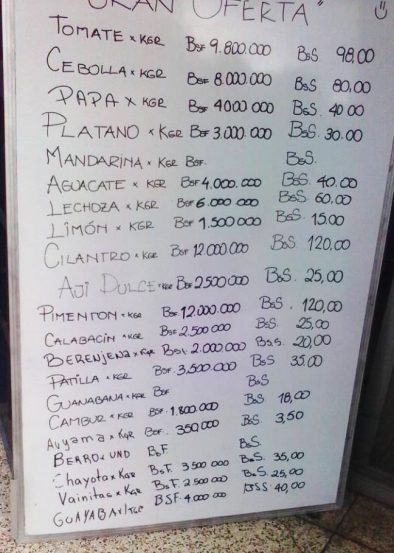 GRAN OFERTA"
TOMATE x KGR BSF 9.800.000 BSS 98,00
CEBOLLA x KGR BSF 8.000.000 BSS 80,00
PAPA x KGR BSF 4000.000 BSS. 40.00
PLATANO x KGR BSF 3.000.000 BSS. 30.00
MANDARINA x KGR BSF. BSS.
AGUACATE x KGR BSF 4.000.000 BSS. 40.00
LECHOZA x KGR BSF 6.000.000 BSS. 60,00
LIMÓN x KGR BSF 1.500.000 BSS. 15.00
CILANTRO x KGR BSF 12.000.000 BSS. 120,00
AJÍ DULCE x KGR BSF 2500.000 BSS. 25,00
PIMENTON x KGR BSF 12.000.000 BSS. 120,00
CALABACIN x KGR BSF 2.500.000 BSS. 25,00
BERENJENA x KGR BSF. 2.000.000 BSS. 20,00
PATILLA x KGR BSF. 3.500.000 BSS 35.00
GUANABANA x KGR BSF BSS
CAMBUR x KGR BSF. 1.800.000 BSS 18,00
Auyama x KGR BSF. 350.000 BSS. 3,50
BERRO x UND BSF BSS
Chayota x KGR BSF. 3.500.000 BSS. 35,00
Vainitas x KGR BSF. 2.500.000 BSS. 25,00
GUAYABA x KGR BSF. 4.000.000 BSS. 40,00